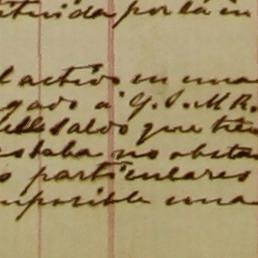 tituida por la in
l activo en una
gado á G. S. M R.
saldo que
estaba no obsta
o particulares
mposible una